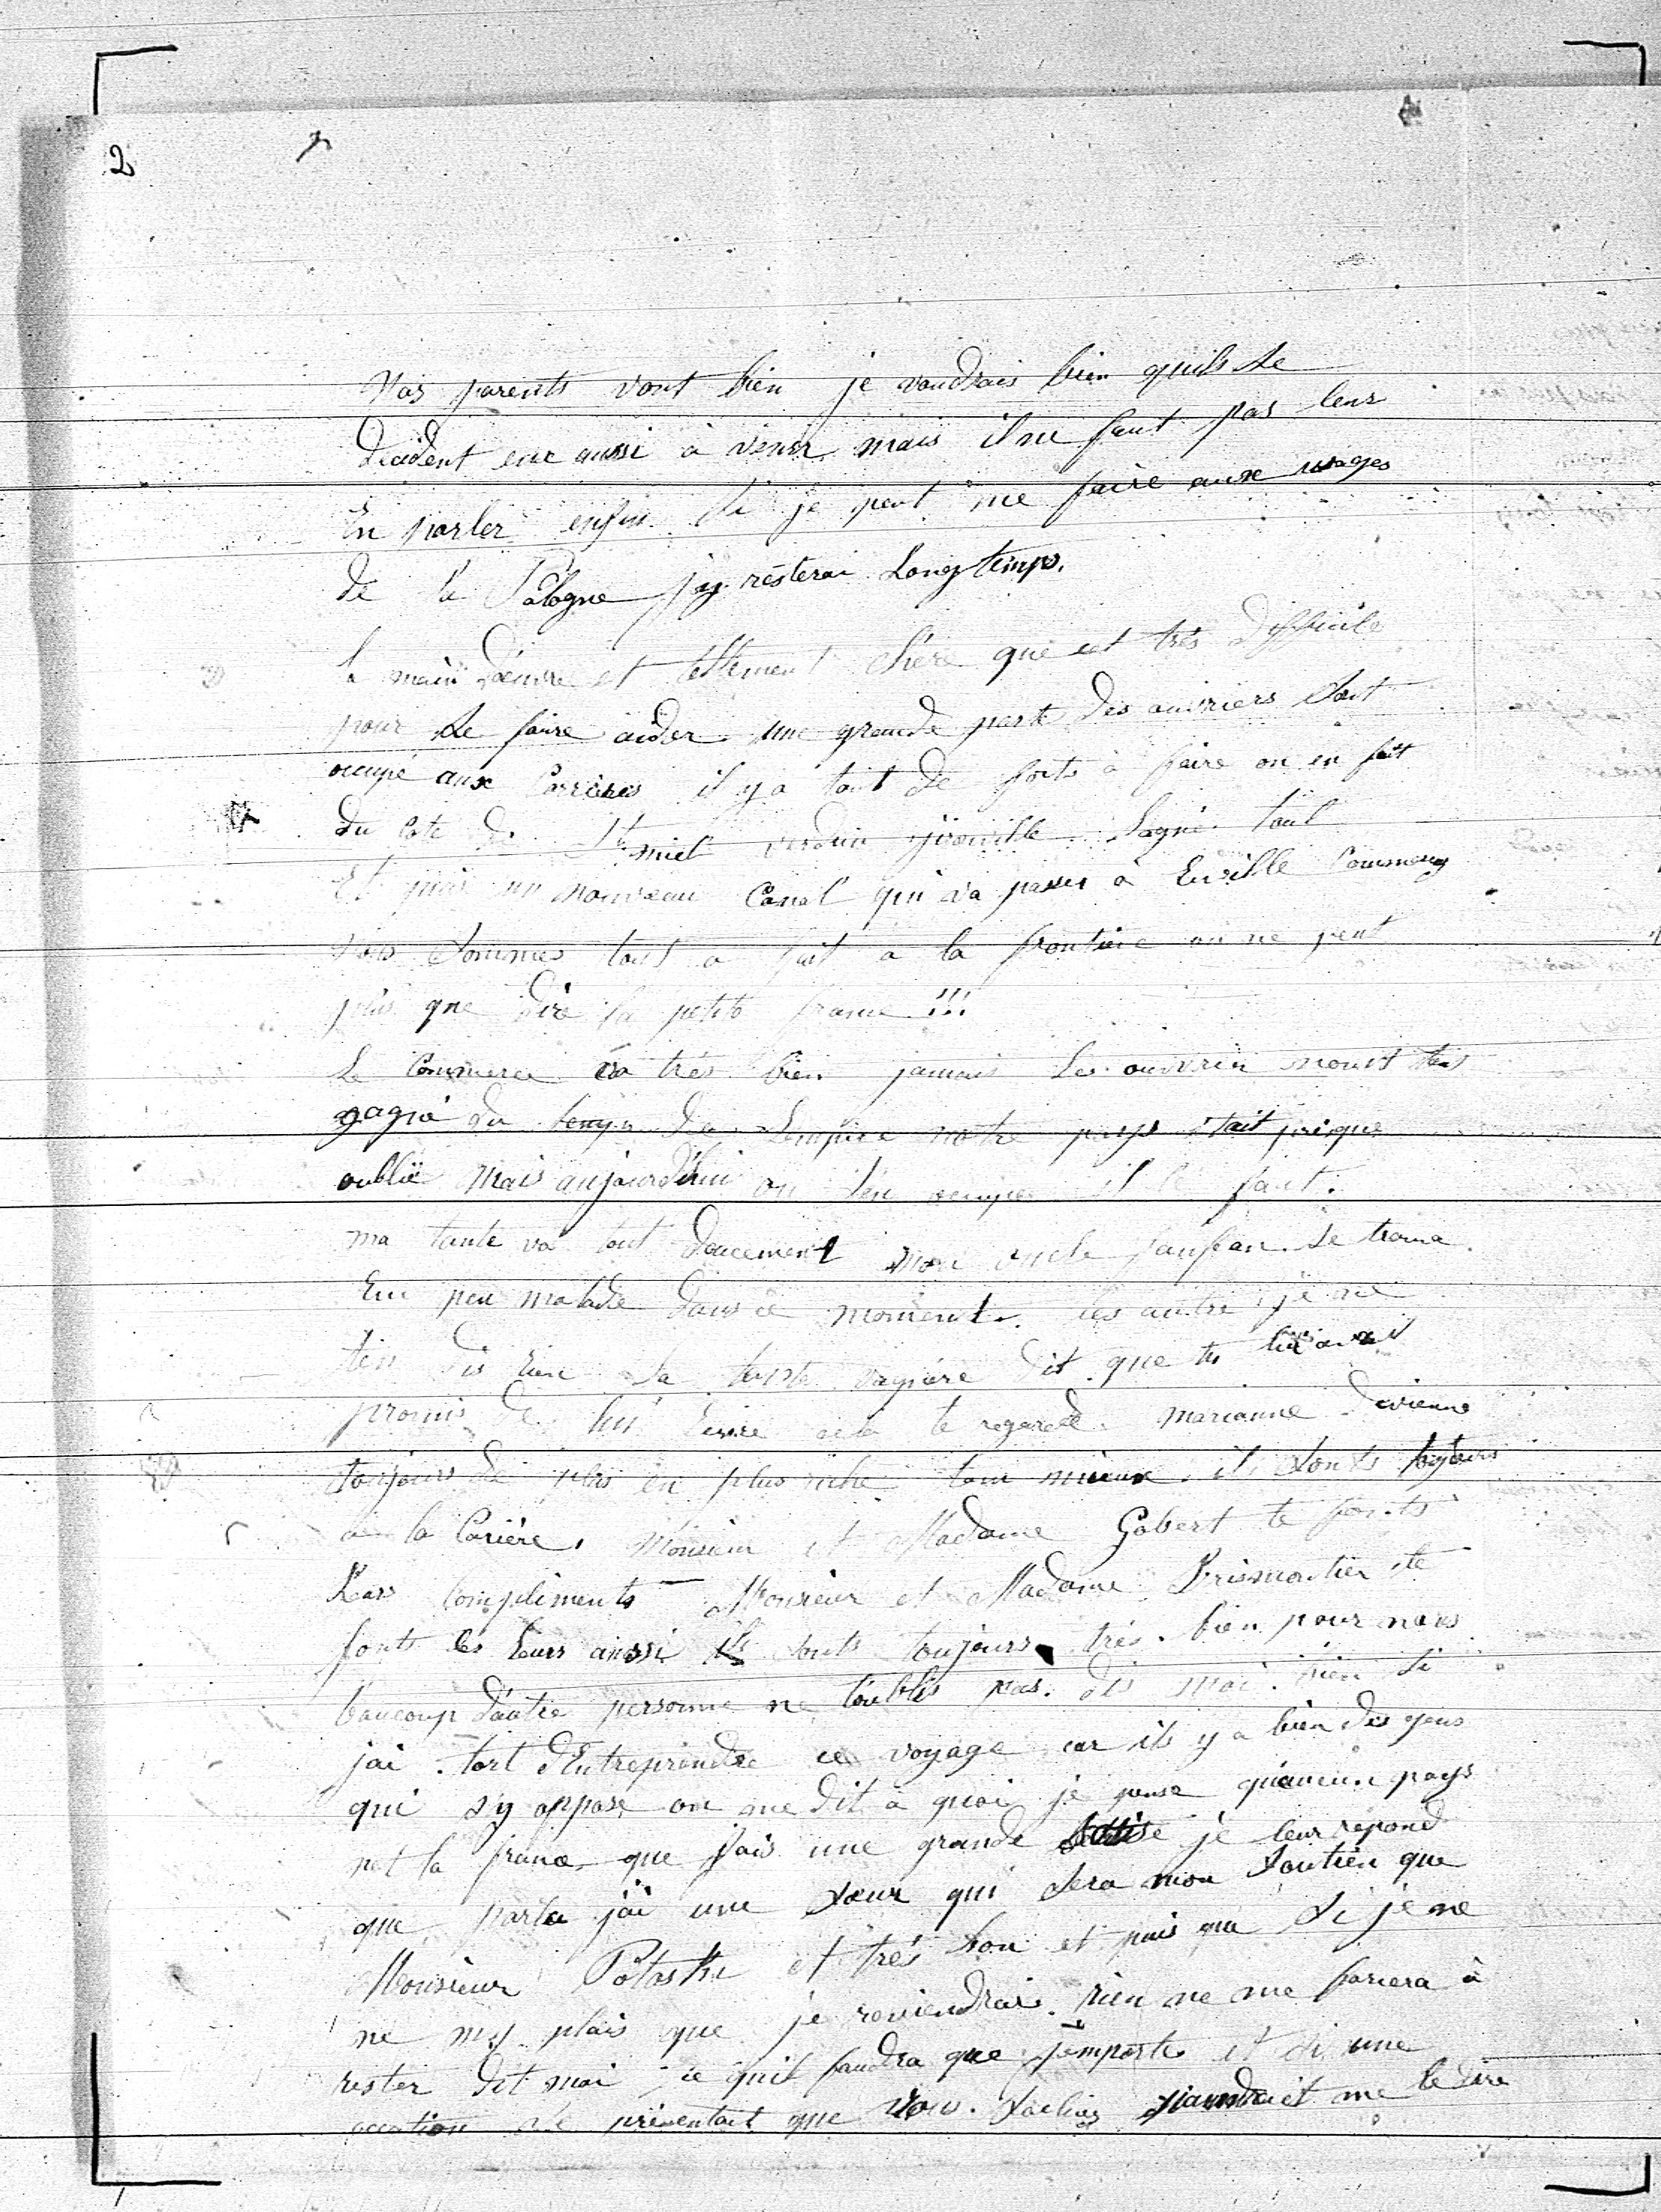 2
Nos parents vont bien je voudrais bien quils se
décident eux aussi à venir mais il ne faut pas leur
En parler enfin si je peut me faire aux usages
de la Pologne j'ay resterai Longtemps.
la main d'euvre et tellement chère que cet très difficile
pour se faire aider une grande parte des ouvriers sont
occupé aux Carrières il y a tout de forts à faire on en fait
du coté de St miel verdun jironville Lagné toul
Et puis un nouveau Canal qui va passer à Euville Commercy
nous sommes tout a fait a la frontière on ne peut
plus que dire la petite france !!!
Le Commerce va très bien jamais les ouvrier nonts tant
gagné du temps de Lempire notre pays était presque
oublié mais aujourd'hui on s'en occupe il le faut.
ma tante va tout doucement mon oncle se trouve
Eun peu malade dans ce moment les autre je ne
ten dis Rien La tente dit que tu lui avais
promis de lui Ecrire cela te regarde. marianne devienne
toujours de plus en plus riche tant mieux ils sonts toujours
à la Carière, Monsieur et Madame Gobert te fonts
Leurs Compliments Monsieur et Madame te
fonts les Leurs aussi ils sonts toujours très bien pour nous
baucoup d'autre personne ne t'oublis pas. dis moi bien si
jai tort d'Entreprendre ce voyage car ils y a bien des gens
qui s'y oppose on me dit à quoi je pense qu'aucun pays
net la france que fais une grande sottise je leur répond
que parla jai une sœur qui sera mon soutien que
Monsieur Potaski et très bon et puis que si je ne
ne my plais que je reviendrai rien ne me forcera à
rester dit moi ce quil faudra que j'emporte et si une
occation se présentait que vous sachiez viendrait me le dire